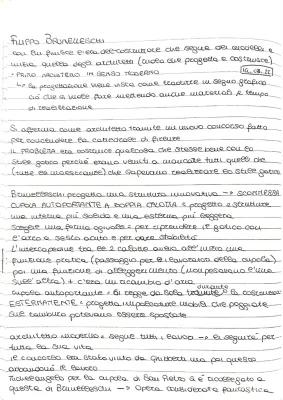 FILIPPO BRUNELLESCHI
con lui finisce l'era del costruttore che segue dei modelli e
inizia quella degli architetti (colui che progetta e costruisce)
• PRIMO ARCHITETTO IN SENSO MODERNO
↳ la progettazione viene vista come tradurre in segno grafico
ciò che si vuole fare mettendo anche materiali e tempo
di realizzazione
Si afferma come architetto tramite un nuovo concorso fatto
per concludere la cattedrale di firenze
IL PROBLEMA era costruire qualcosa che stesse bene con lo
stile gotico perché erano venuti a mancare tutti quelli
che sapevano realizzare lo stile gotico
BRUNELLESCHI progetta una struttura innovativa → SCOMMESSA
CUPOLA AUTOPORTANTE A DOPPIA CALOTTA = progetta 2 strutture
una interna più solida e una esterna più leggera
sceglie una forma ogivale = per riprendere il gotico con
l'arco a sesto acuto e per dare stabilità
L'intercapedine tra le 2 calotte aveva all'inizio una
funzione pratica (passaggio per i lavoratori della cupola)
poi una funzione di alleggerimento (non pesavano l'una
sull'altra) + c'era un ricambio d'aria
cupola autoportante = si regge da sola durante la costruzione
ESTERNAMENTE = progetta impalcature mobili che poggiate
sul tamburo potevano essere spostate
architetto moderno = segue tutti i lavori → la seguirà per
tutta la sua vita
il concorso era stato vinto da Ghiberti ma poi questo
abbandonò il lavoro
Michelangelo per la cupola di San Pietro si è ricollegato a
questa di BRUNELLESCHI → Opera considerata fantastica